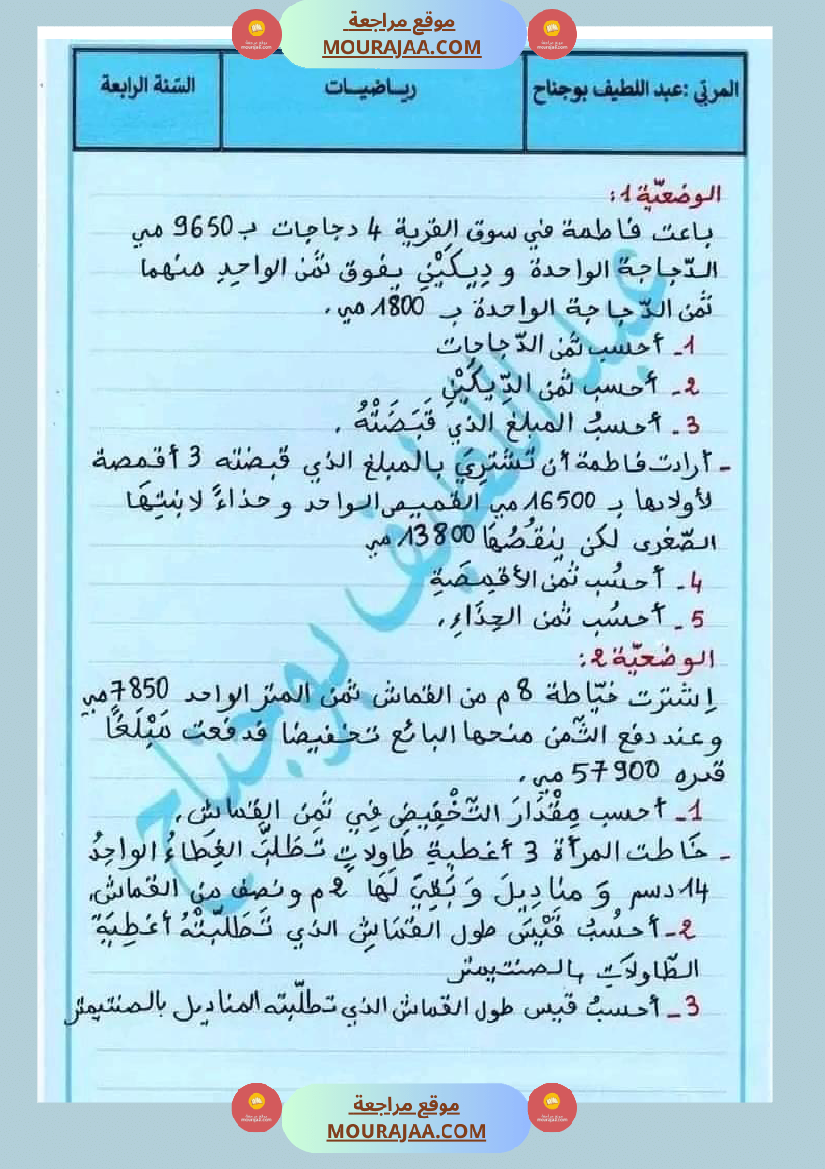 موقع مراجعة
MOURAJAA.COM
المربّي :عبد اللطيف بوجناح
ريـاضيـات
السّنة الرابعة
الوضعيّة 1:
باعت فاطمة في سوق القرية 4 دجاجات بـ 9650 مي
الدّجاجة الواحدة و دِيكَيْنِ يفوق ثمن الواحِدِ منهما
ثمن الدّجاجة الواحدة بـ 1800 مي.
1ـ أحسب ثمن الدّجاجات
2ـ أحسب ثمن الدِّيكَيْنِ
3ـ أحسبُ المبلغ الذي قَبَضَتْهُ.
ـ أرادت فاطمة أن تَشْتَرِيَ بالمبلغ الذي قبضته 3 أقمصة
لأولادها بـ 16500 مي القميص الواحد و حذاءً لابنتِهَا
الصّغرى لكن ينقُصُهَا 13800 مي
4ـ أحسُب ثمن الأقمِصَةِ
5ـ أحسُب ثمن الحِذَاءِ.
الوضعيّة 2:
اِشترت خيّاطة 8 م من القماش ثمن المتر الواحد 7850 مي
وعند دفع الثّمن منحها البائع تخفيضا فدفعت مَبْلَغًا
قدره 57900 مي.
1ـ أحسب مِقْدَارَ التَّخْفِيضِ فِي ثمنِ القماشِ.
ـ خَاطت المرأة 3 أغطيةِ طَاولاتٍ تَطَلَّبَ الغِطَاءُ الواحِدُ
14 دسم وَ مناديلَ وَ بَقِيَ لَهَا 2 م ونصف من القماش.
2ـ أحسُبُ قَيْسَ طول القماشِ الذي تَطَلَّبَتْهُ أغطِيَةُ
الطّاولاَتِ بالصنتيمتر
3ـ أحسبُ قيس طول القماش الذي تطلّبته المناديل بالصنتيمتر
عبد اللطيف بوجناح
موقع مراجعة
MOURAJAA.COM